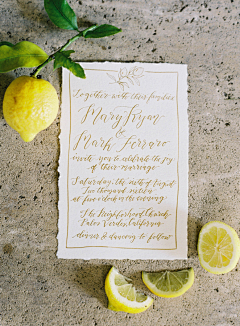 Together with their families
Mary Fryan
&
Mark Ferraro
invite you to celebrate the joy
of their marriage
Saturday, the ninth of August
Two thousand
at five o'clock in the evening
The Neighborhood Church
Palos Verdes, California
dinner & dancing to follow